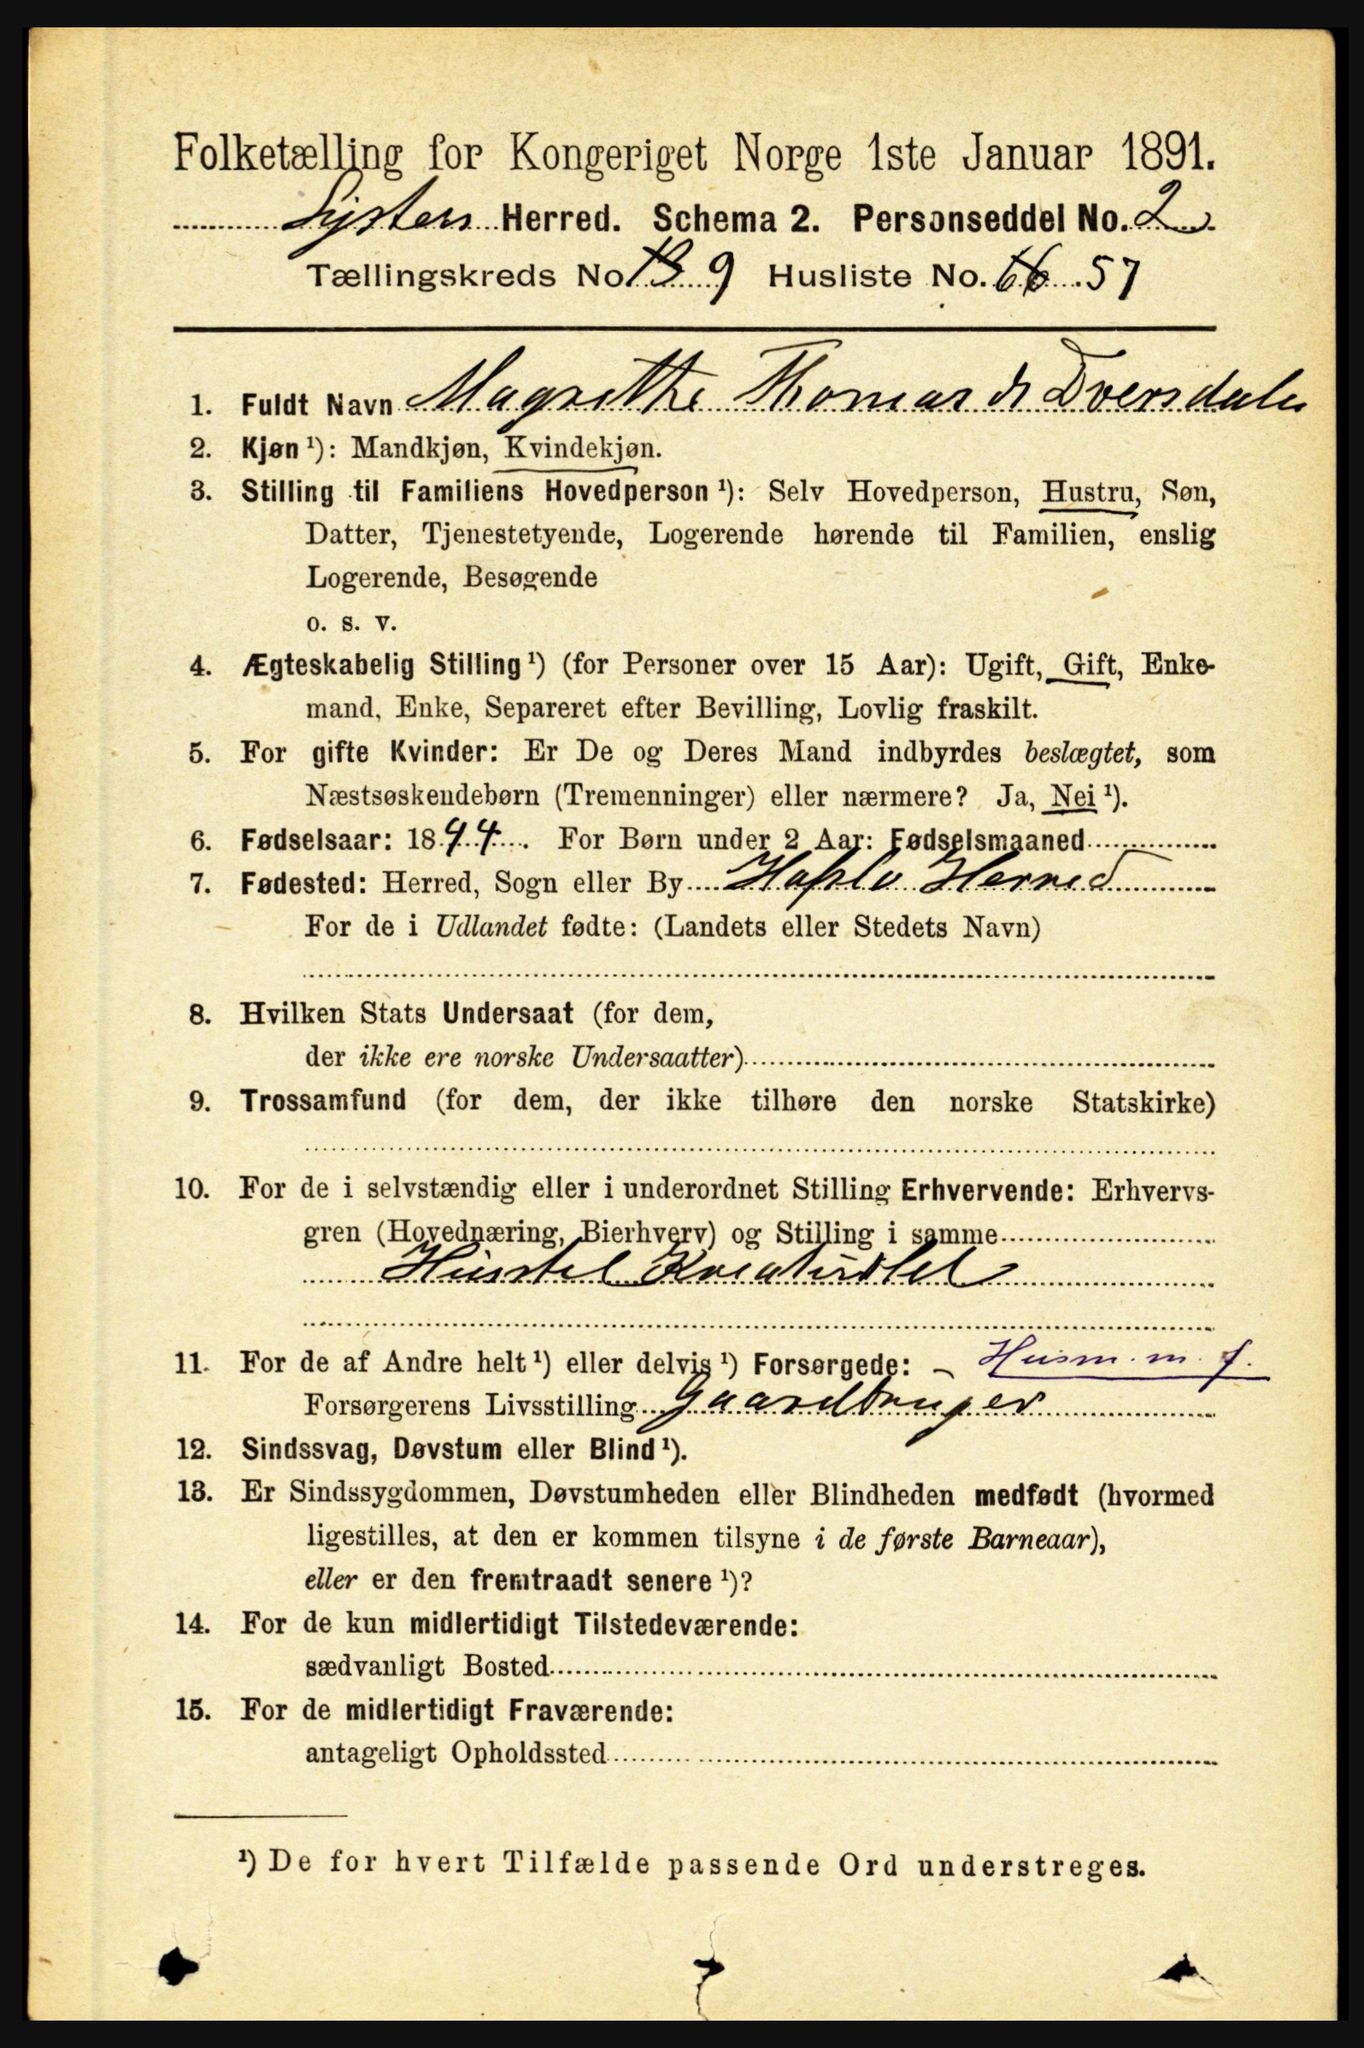 Folketælling for Kongeriget Norge 1ste Januar 1891.
Lyster Herred. Schema 2. Personseddel No. 2
Tællingskreds No. 13 9 Husliste No. 66 57
1. Fuldt Navn Magrethe Thomasdr Dversdalen
2. Kjøn ¹): Mandkjøn, Kvindekjøn.
3. Stilling til Familiens Hovedperson ¹): Selv Hovedperson, Hustru, Søn,
Datter, Tjenestetyende, Logerende hørende til Familien, enslig
Logerende, Besøgende
o. s. v.
4. Ægteskabelig Stilling ¹) (for Personer over 15 Aar): Ugift, Gift, Enke-
mand, Enke, Separeret efter Bevilling, Lovlig fraskilt.
5. For gifte Kvinder: Er De og Deres Mand indbyrdes beslægtet, som
Næstsøskendebørn (Tremenninger) eller nærmere? Ja, Nei ¹).
6. Fødselsaar: 1844. For Børn under 2 Aar: Fødselsmaaned
7. Fødested: Herred, Sogn eller By Hafslo Herred
For de i Udlandet fødte: (Landets eller Stedets Navn)
8. Hvilken Stats Undersaat (for dem,
der ikke ere norske Undersaatter)
9. Trossamfund (for dem, der ikke tilhøre den norske Statskirke)
10. For de i selvstændig eller i underordnet Stilling Erhvervende: Erhvervs-
gren (Hovednæring, Bierhverv) og Stilling i samme
Husstel Kreaturstel
11. For de af Andre helt ¹) eller delvis ¹) Forsørgede: – Husm. m. j.
Forsørgerens Livsstilling Gaardbruger
12. Sindssvag, Døvstum eller Blind ¹).
13. Er Sindssygdommen, Døvstumheden eller Blindheden medfødt (hvormed
ligestilles, at den er kommen tilsyne i de første Barneaar),
eller er den fremtraadt senere ¹)?
14. For de kun midlertidigt Tilstedeværende:
sædvanligt Bosted
15. For de midlertidigt Fraværende:
antageligt Opholdssted
¹) De for hvert Tilfælde passende Ord understreges.